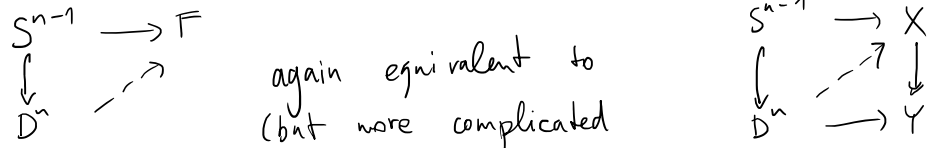 S^{n-1} → F
S^{n-1} → X
again equivalent to
D^n
(but more complicated
D^n → Y